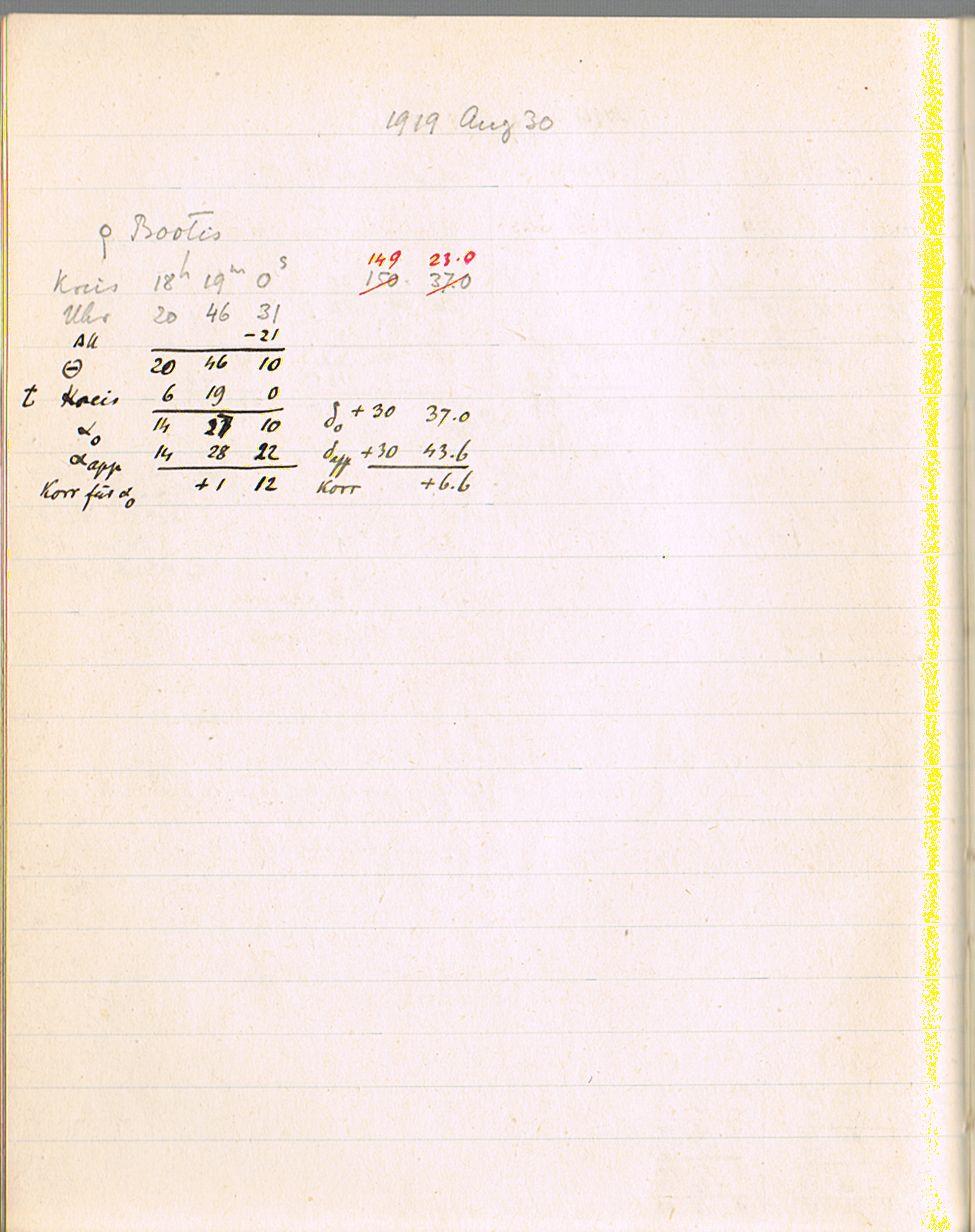 1919 Aug 30
ρ Bootis
149 23.0
Kreis 18h 19m 0s 150. 37.0
Uhr 20 46 31
ΔU −21
Θ 20 46 10
t Kreis 6 19 0
α0 14 27 10 δ0 +30 37.0
αapp 14 28 22 δapp +30 43.6
Korr für α0 +1 12 Korr +6.6